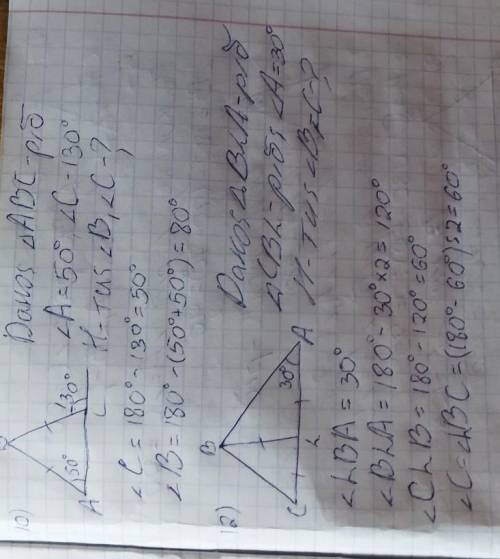 10)
Дано: △ABC-р/б
∠A=50°, ∠C-130°
З-ти: ∠B, ∠C-?
B
A
50°
130°
C
∠C = 180°-130°=50°
∠B= 180°-(50°+50°)=80°
12)
Дано: △BLA-р/б
△CBL-р/б; ∠A=30°
З-ти: ∠B, ∠C-?
B
C
L
30°
A
∠LBA = 30°
∠BLA = 180°-30°×2=120°
∠CLB = 180°-120°=60°
∠C=∠LBC=(180°-60°):2=60°